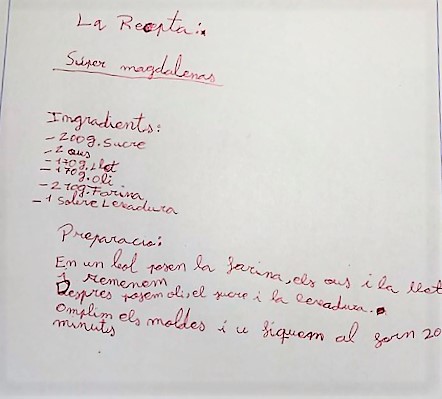 La Recepta:
Súper magdalenas
Ingredients:
- 200g. Sucre
- 2 ous
- 170g. Llet
- 170g. Oli
- 210g. Farina
- 1 Sobre Levadura
Preparacio:
En un bol posem la farina, els ous i la llet
i remenem
Despres posem oli, el sucre i la levadura.
Omplim els moldes i u fiquem al forn 20
minuts